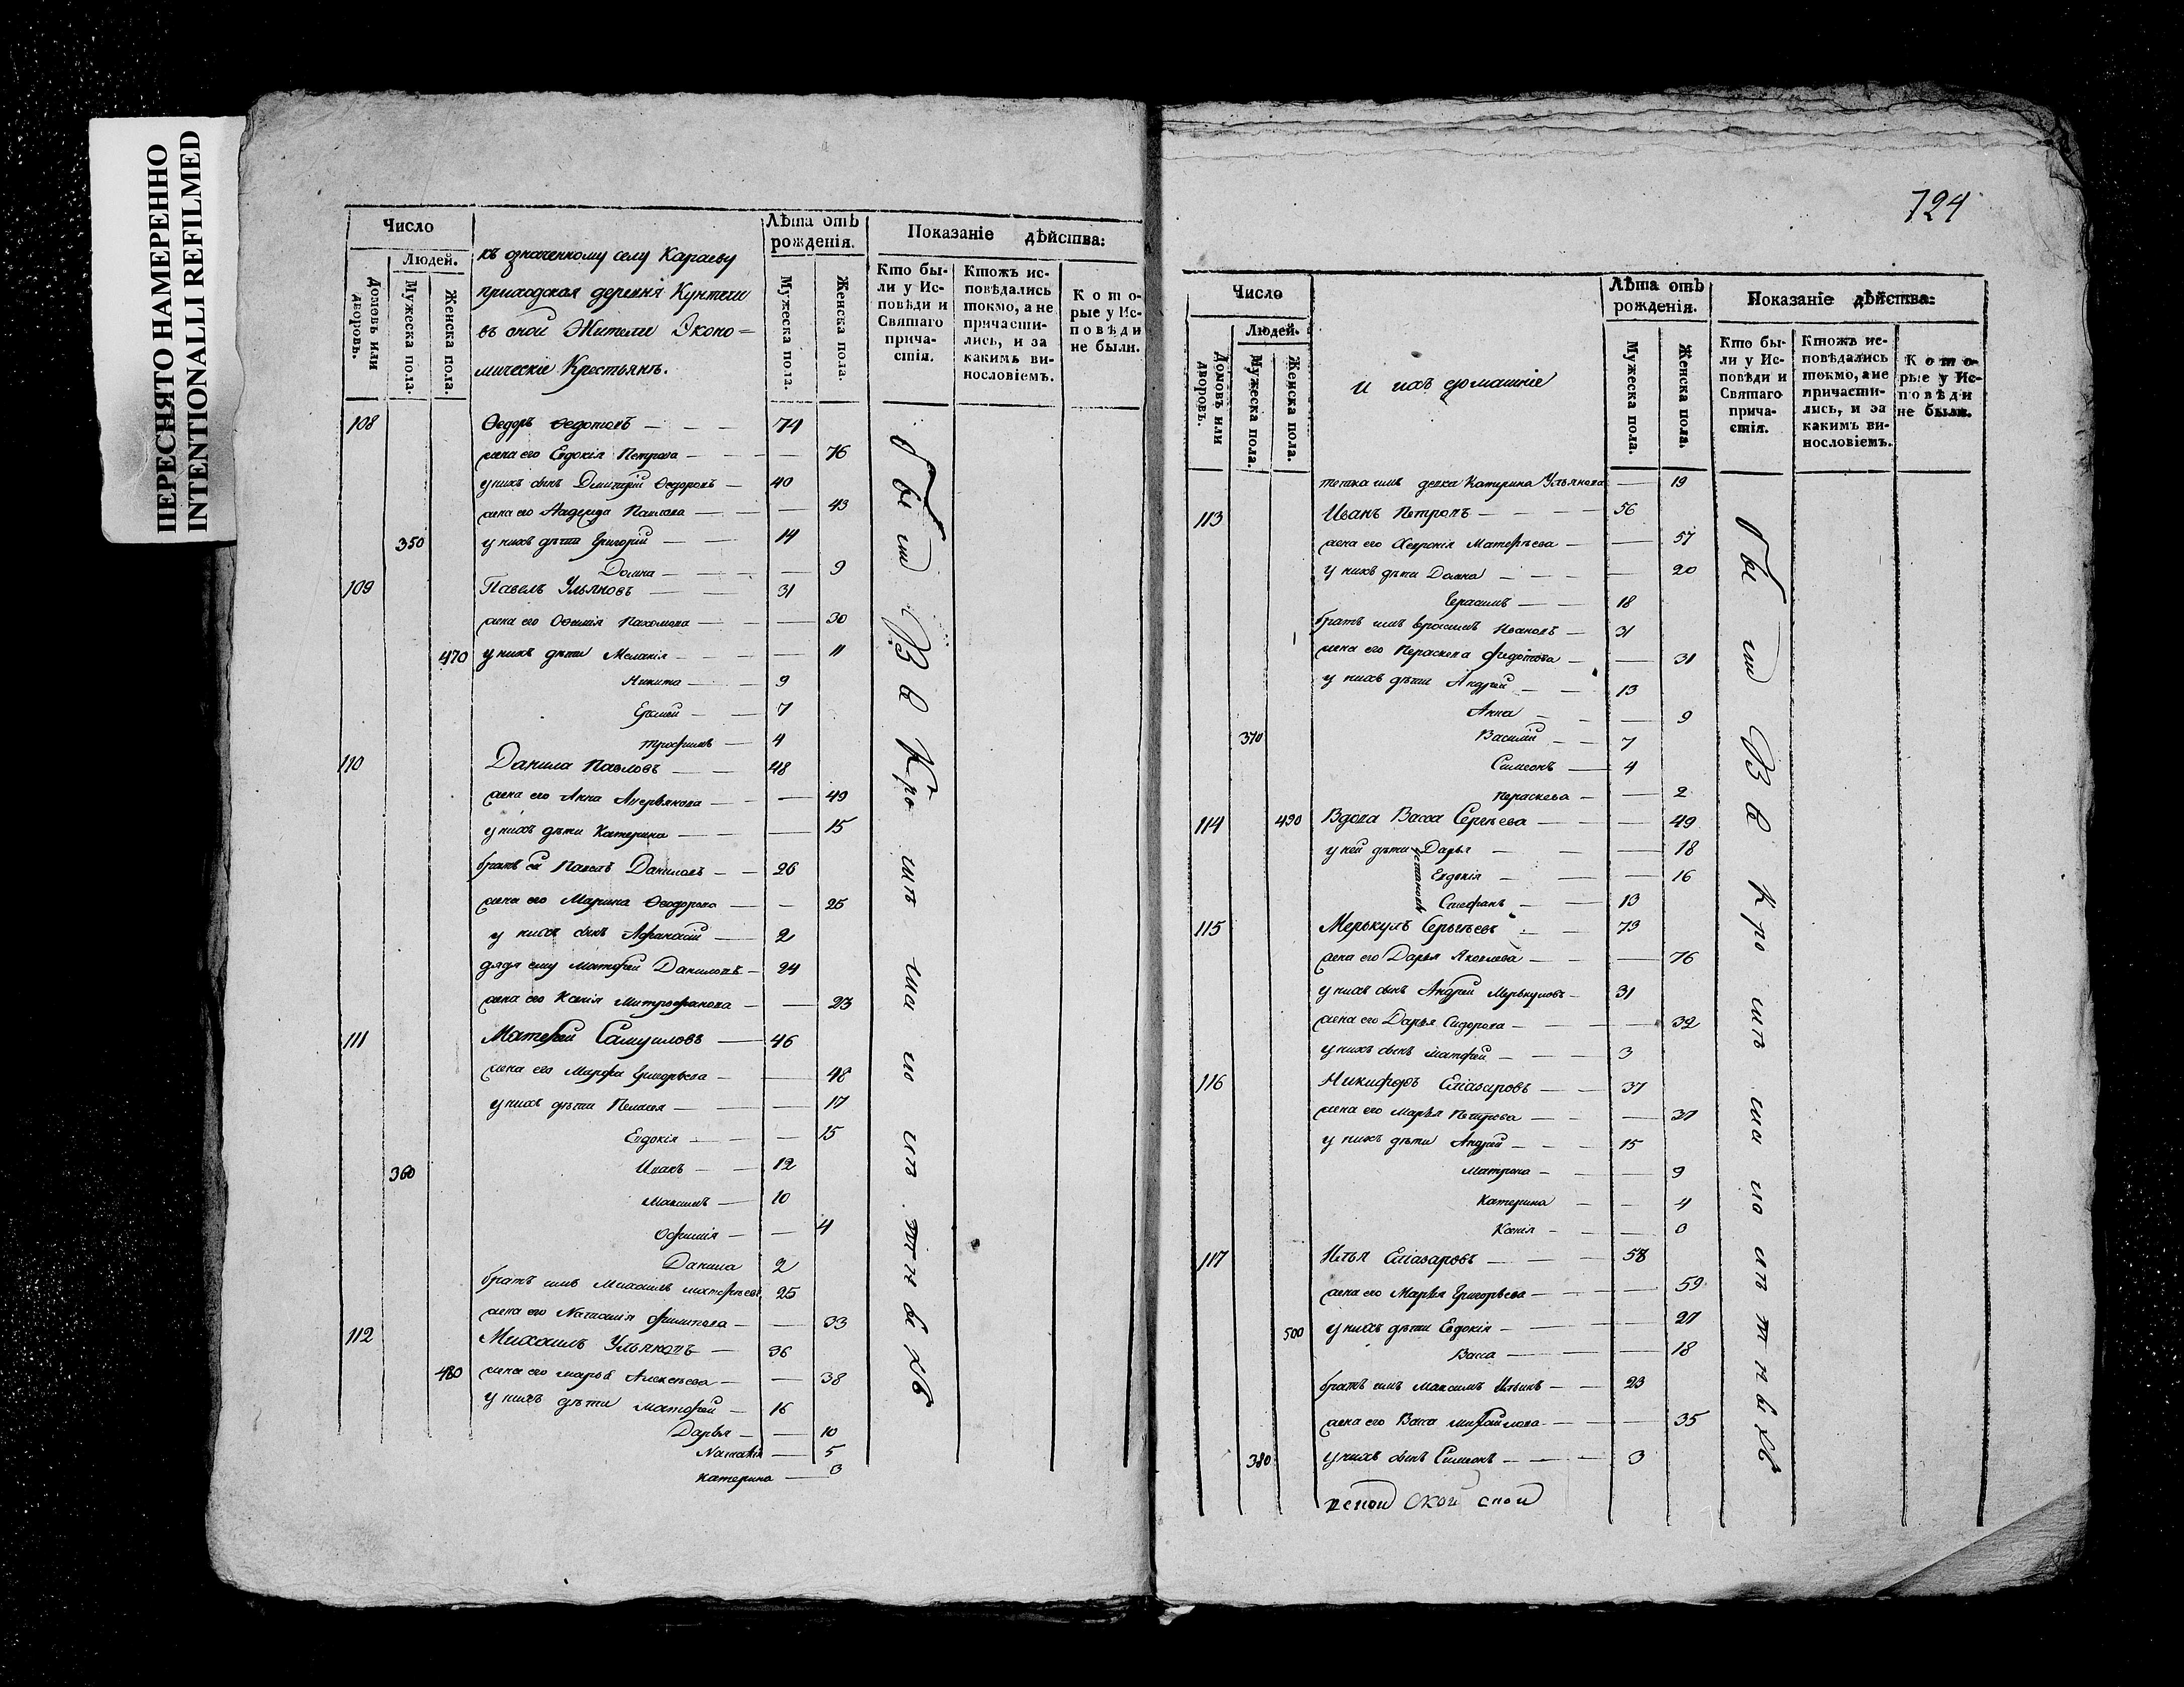 ПЕРЕСНЯТО НАМЕРЕННО
INTENTIONALLI REFILMED
Число
Людей.
Домовъ или дворовъ.
Мужеска пола.
Женска пола.
къ означенному селу Караеву
приходская деревня
въ оной Жители Эконо=
мическіе Крестьянъ.
Лѣта отъ рожденія.
Мужеска пола.
Женска пола.
Показаніе дѣйства:
Кто бы-
ли у Ис-
повѣди и
Святаго
прича-
стія.
Ктожъ ис-
повѣдались
токмо, а не
причасти-
лись, и за
какимъ ви-
нословіемъ.
Кото-
рые у Ис-
повѣди
не были.
108 Ѳедоръ Ѳедотовъ — 74
жена его Евдокія Петрова — 76
у нихъ сынъ Димитрій Ѳедоровъ — 40
жена его Надежда Павлова — 43
350 у нихъ дѣти Григорій — 14
Домна — 9
109 Павелъ Ульяновъ — 31
жена его Пахомова — 30
470 у нихъ дѣти Меланія — 11
Никита — 9
7
Трофимъ — 4
110 Данила Павловъ — 48
жена его Анна Аверьянова — 49
у нихъ дѣти Катерина — 15
братъ Павелъ Даниловъ — 26
жена его Марина Ѳеодорова — 25
у нихъ сынъ Афанасій — 2
дядя ему Матфей Даниловъ — 24
жена его Ксенія Митрофанова — 23
111 Матвей Самуиловъ — 46
жена его Марфа Григорьева — 48
у нихъ дѣти Пелагея — 17
Евдокія — 15
360 Иванъ — 12
Максимъ — 10
Офимія — 4
Данила 2
братъ имъ Михаилъ 25
жена его Наталія Филипова — 33
112 Михаилъ Ульяновъ — 36
480 жена его Марья Алексеева — 38
у нихъ дѣти Матфей — 16
Дарья — 10
Наталія — 5
Катерина — 3
724
Число
Людей.
Домовъ или дворовъ.
Мужеска пола.
Женска пола.
и ихъ домашніе
Лѣта отъ рожденія.
Мужеска пола.
Женска пола.
Показаніе дѣйства:
Кто бы-
ли у Ис-
повѣди и
Святаго
прича-
стія.
Ктожъ ис-
повѣдались
токмо, а не
причасти-
лись, и за
какимъ ви-
нословіемъ.
Кото-
рые у Ис-
повѣди
не были.
тетка имъ девка Катерина Ульянова — 19
113 Иванъ Петровъ — 56
жена его Матвеева — 57
у нихъ дѣти Домна — 20
Герасимъ — 18
братъ имъ Ивановъ — 31
жена его Пераскева Федотова — 31
у нихъ дѣти Андрей — 13
Анна — 9
370 Василій — 7
Симеонъ — 4
Пераскева — 2
114 490 Вдова Васса Сергеева — 49
у ней дѣти Дарья — 18
Евдокія — 16
Стефанъ — 13
115 Меркулъ Сергѣевъ — 73
жена его Дарья Яковлева — 76
у нихъ сынъ Андрей Меркуловъ — 31
жена его Дарья Сидорова — 32
у нихъ сынъ Матфей — 3
116 Никифоръ Еліазаровъ — 37
жена его Марья Петрова — 37
у нихъ дѣти Андрей — 15
Матрона — 9
Катерина — 4
Ксенія — 0
117 Илья Еліазаровъ — 58
жена его Марья Григорьева — 59
500 у нихъ дѣти Евдокія — 27
Васса — 18
братъ имъ Максимъ Ильинъ — 23
жена его Васса Михайлова — 35
380 у нихъ сынъ Симеонъ — 3